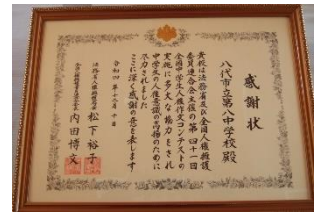 感謝状
八代市立第八中学校 殿
貴校は法務省及び全国人権擁護
委員連合会主催の第四十一回
全国中学生人権作文コンテストの
実施に多大な協力をされ
中学生の人権意識の高揚のために
尽力されました
ここに深く感謝の意を表します
令和四年十二月十日
法務省人権擁護局長 松下裕子
全国人権擁護委員連合会長 内田博文